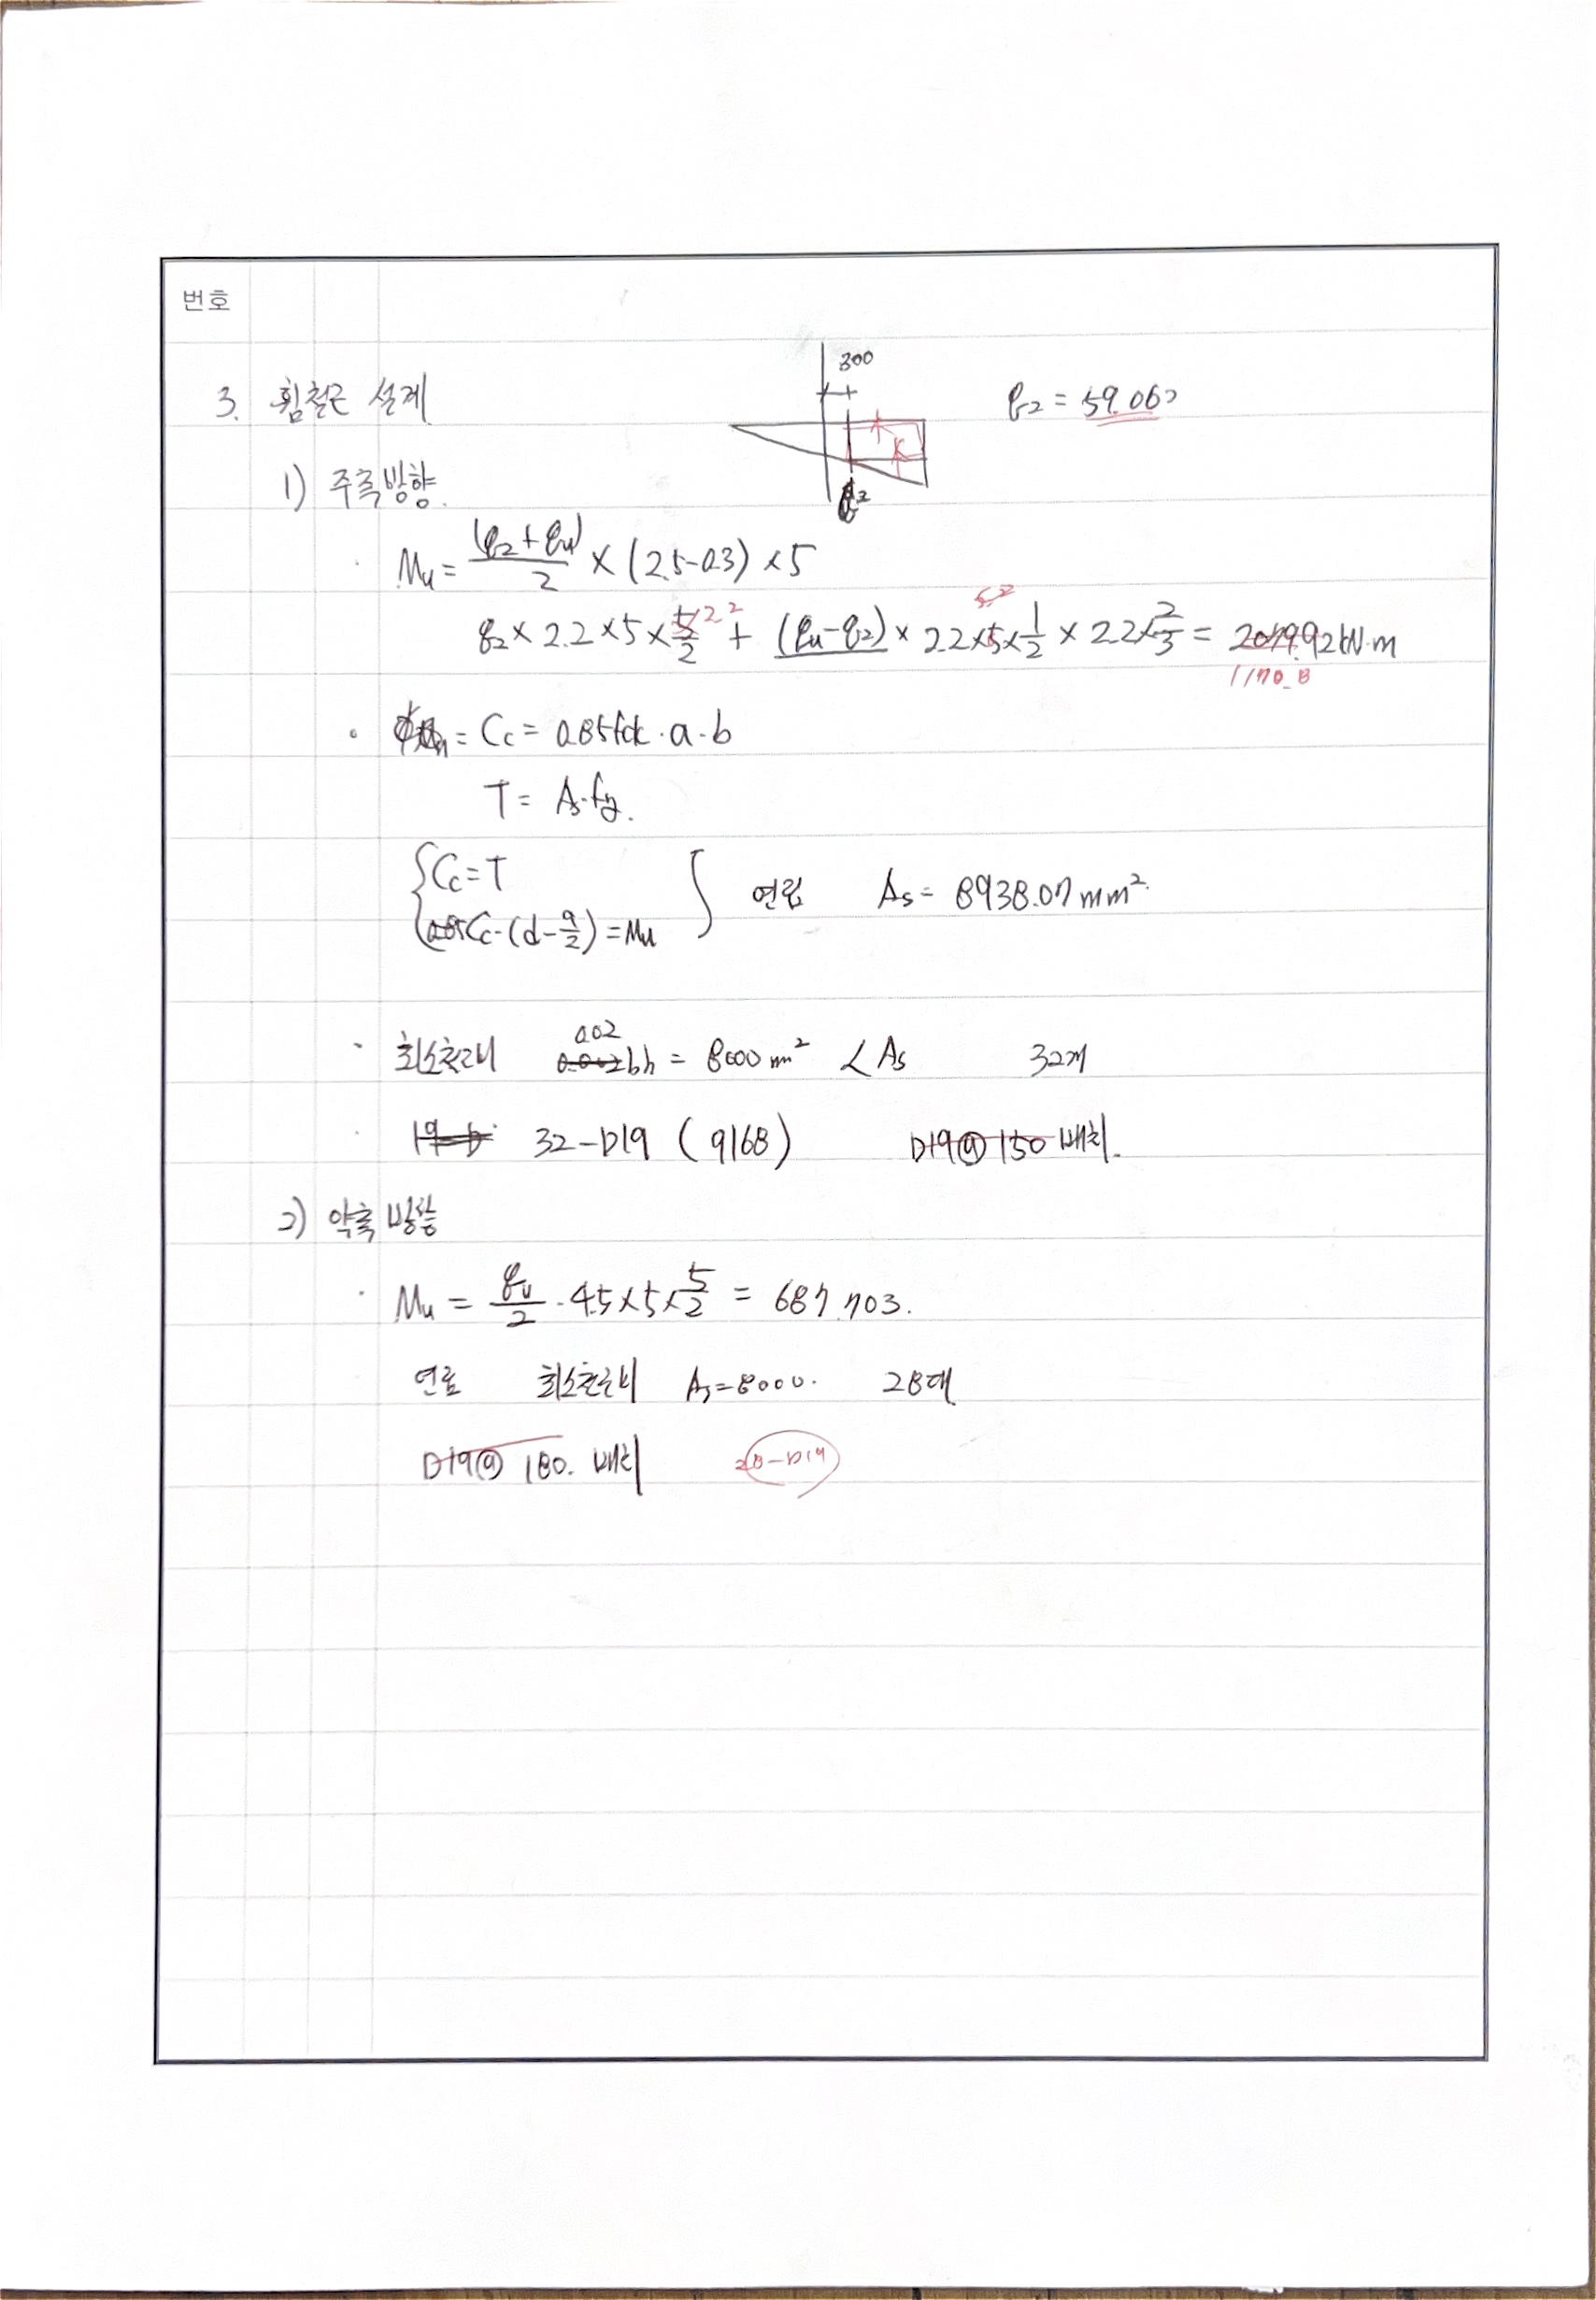 번호
300
3. 휨철근 설계
q2 = 59.062
1) 주축방향.
q2
Mu = (q2+qu)/2 × (2.5-0.3) × 5
q2 × 2.2 × 5 × 5/2 2.2 + (qu-q2) × 2.2 × 5 × 1/2 × 2.2 × 2/3 = 2019.92 kN·m
1170.8
= Cc = 0.85fck·a·b
T = As·fy.
Cc = T
Cc·(d-a/2) = Mu
연립 As = 8938.07 mm².
최소철근비 0.02 0.002bh = 8000 mm² < As 32개
32-D19 (9168) D19@150 배치.
2) 약축 방향
Mu = qu/2 · 4.5 × 5 × 5/2 = 687.703.
연립 최소철근비 As = 8000. 28개
D19@180. 배치 28-D19